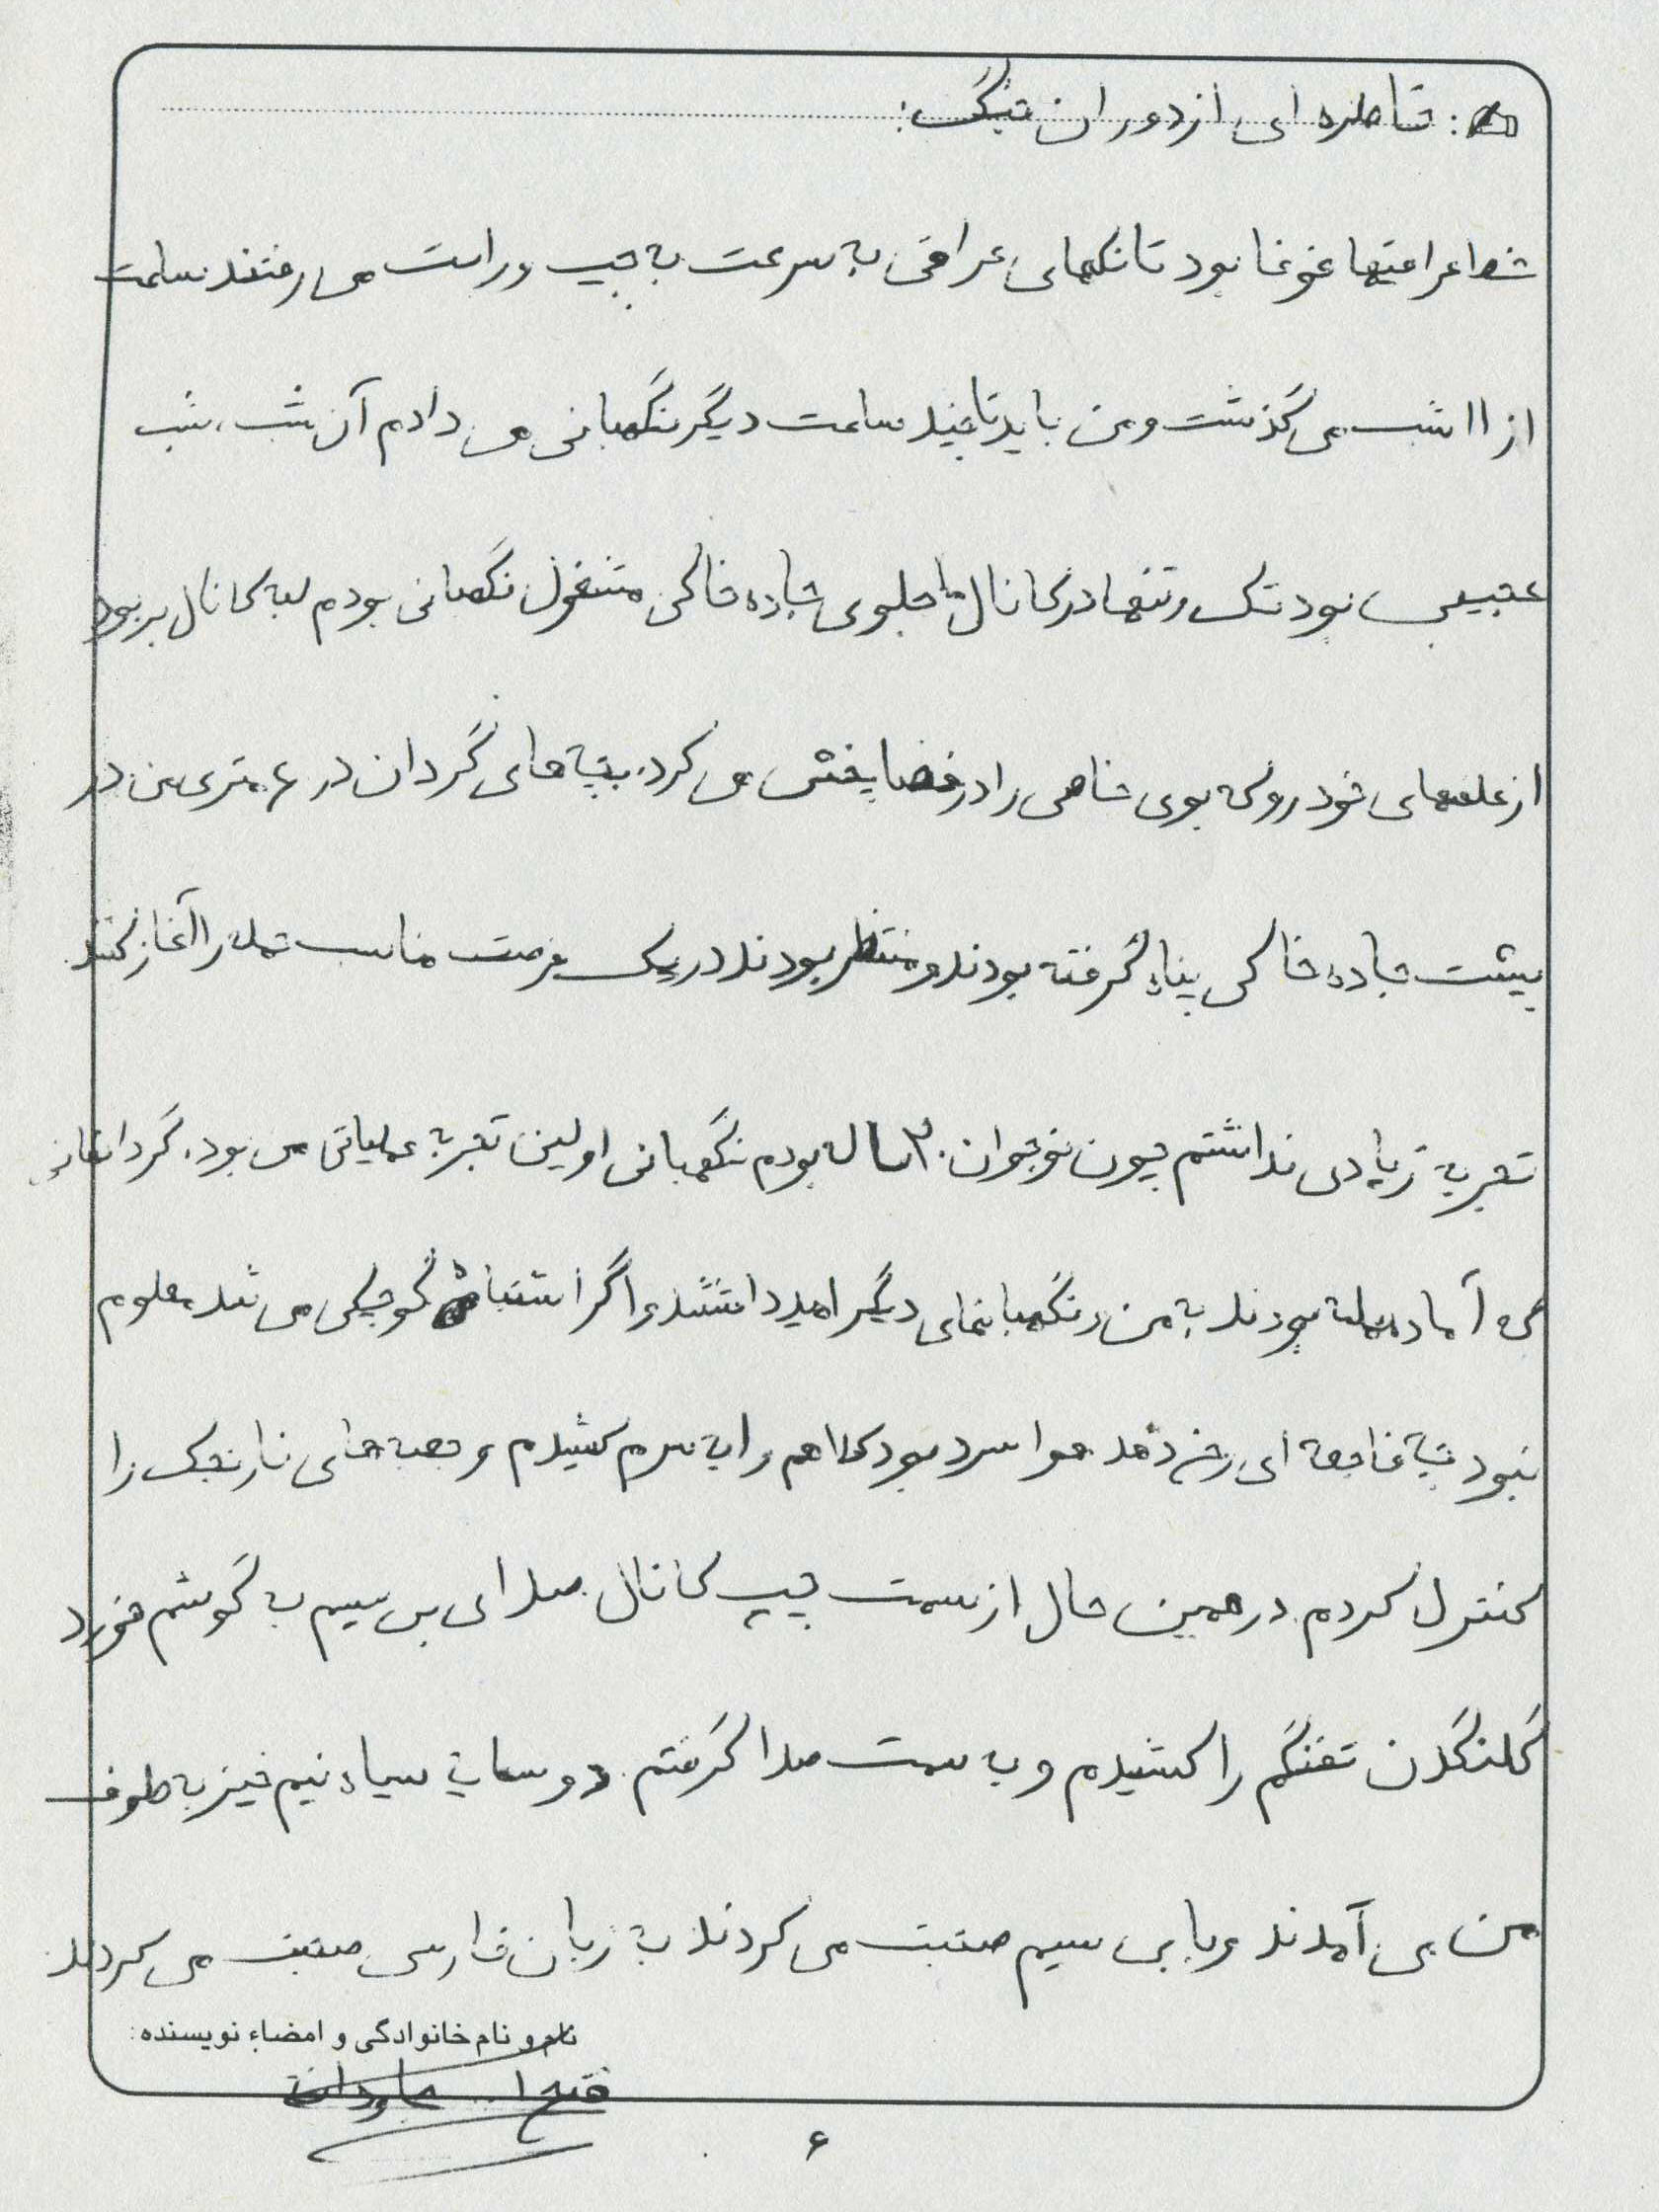 : خاطره ای از دوران جنگ:
خط عراقیها غوغا بود تانکهای عراقی به سرعت به چپ و راست می رفتند ساعت
از ۱۱ شب می گذشت و من باید تا چند ساعت دیگر نگهبانی می دادم آن شب، شب
عجیبی بود تک و تنها در کانال جلوی جاده خاکی مشغول نگهبانی بودم لبه کانال پر بود
از علفهای خودرو که بوی خاصی را در فضا پخش می کرد. بچه های گردان در ۴ متری من در
پشت جاده خاکی پناه گرفته بودند و منتظر بودند در یک فرصت مناسب حمله را آغاز کنند
تجربه زیادی نداشتم چون نوجوان ۲۰ ساله بودم نگهبانی اولین تجربه عملیاتی من بود. گردانهای
که آماده حمله بودند به من و نگهبانهای دیگر امید داشتند و اگر اشتباه کوچکی می شد معلوم
نبود چه فاجعه ای رخ دهد هوا سرد بود کلاهم را به سرم کشیدم و جعبه های نارنجک را
کنترل کردم. در همین حال از سمت چپ کانال صدای بی سیم به گوشم خورد
گلنگدن تفنگم را کشیدم و به سمت صدا گرفتم. دو سایه سیاه نیم خیز به طرف
من می آمدند و با بی سیم صحبت می کردند به زبان فارسی صحبت می کردند.
نام و نام خانوادگی و امضاء نویسنده:
۶